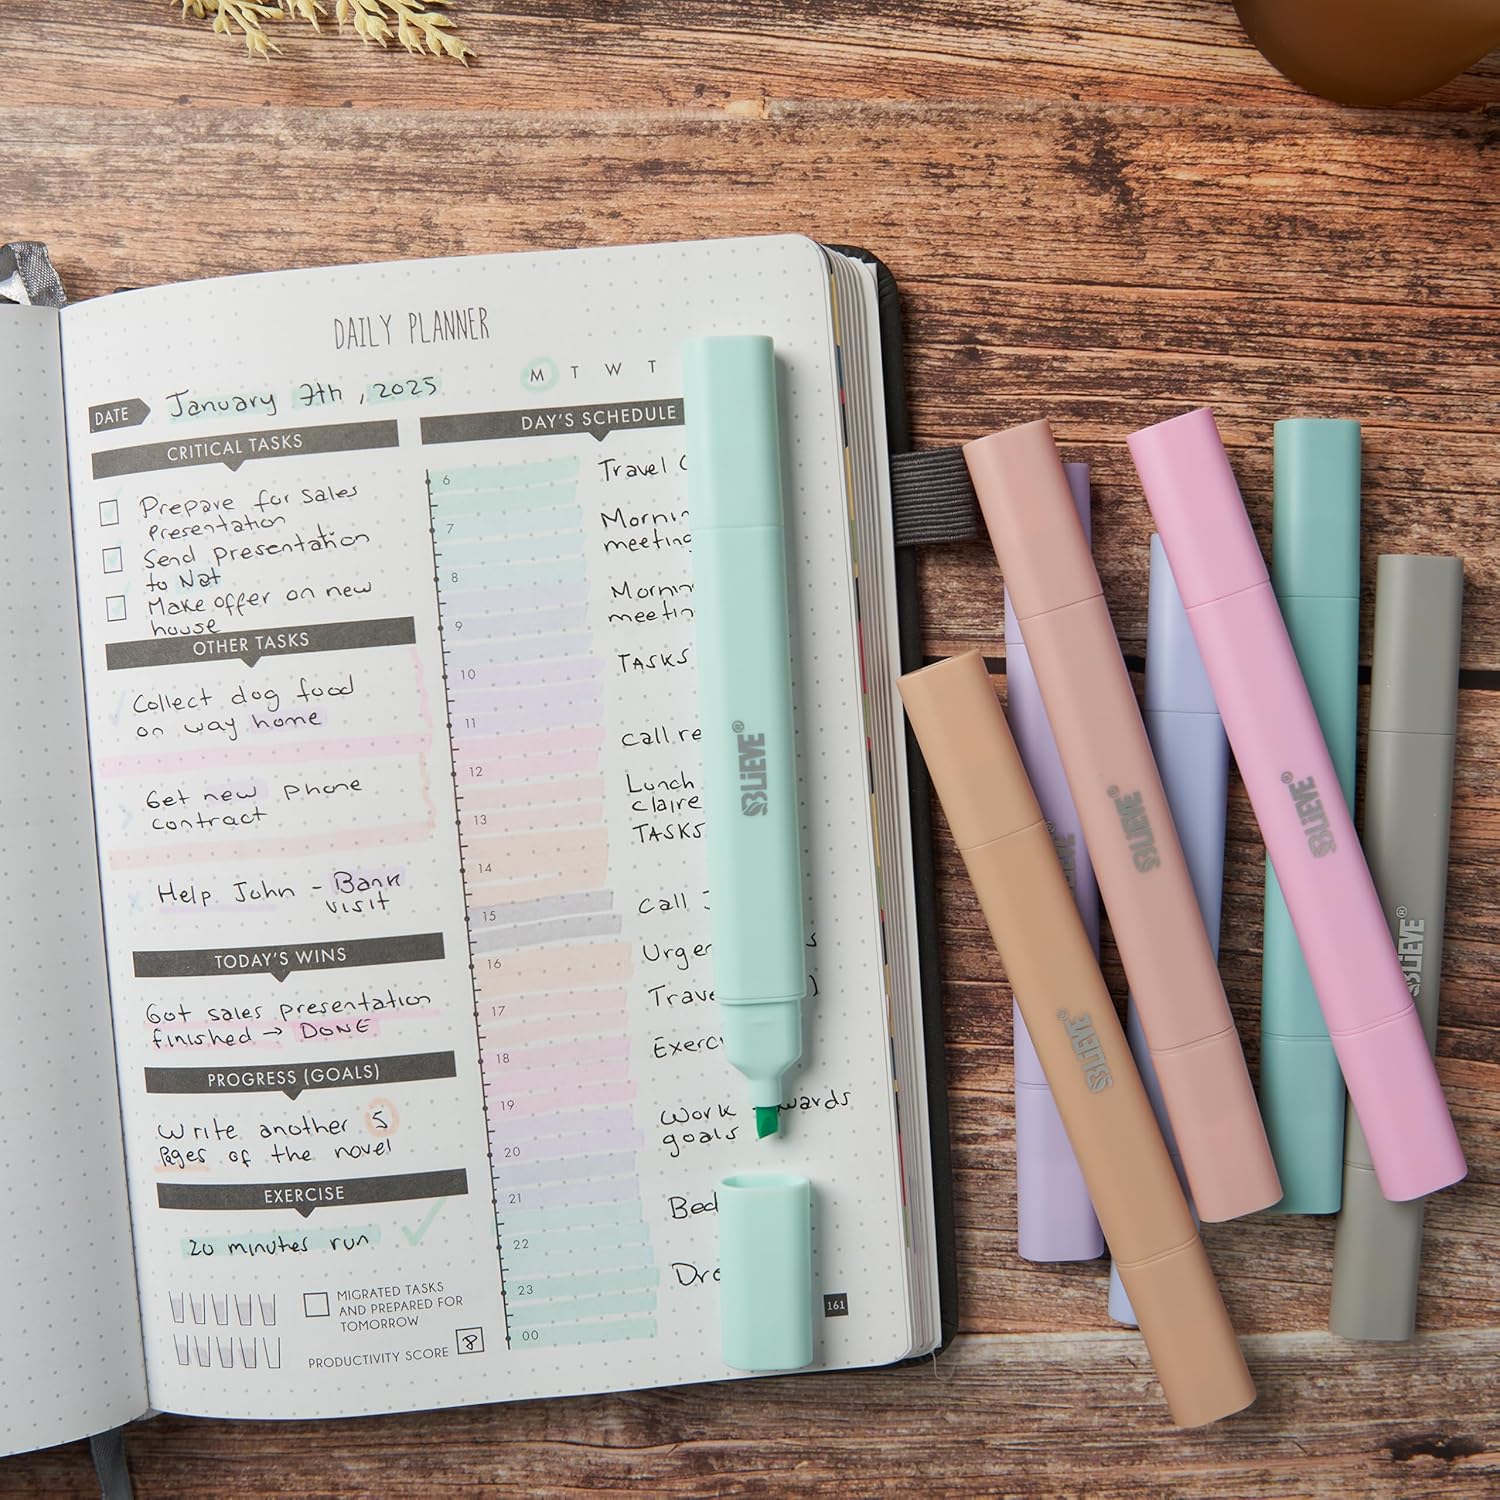 DAILY PLANNER
DATE January 7th, 2025
M T W T
CRITICAL TASKS
Prepare for sales
presentation
Send presentation
to Nat
Make offer on new
house
OTHER TASKS
Collect dog food
on way home
Get new phone
contract
Help John - Bank
visit
TODAY'S WINS
Got sales presentation
finished → DONE
PROGRESS (GOALS)
Write another 5
Pages of the novel
EXERCISE
20 minutes run
MIGRATED TASKS
AND PREPARED FOR
TOMORROW
PRODUCTIVITY SCORE 8
DAY'S SCHEDULE
6
7
8
9
10
11
12
13
14
15
16
17
18
19
20
21
22
23
00
Travel
meeting
meetin
TASKS
call re
Lunch
claire
TASKS
call
Urge
Trave
Exerc
Work wards
goals
Bed
161
BLIEVE®
BLIEVE®
BLIEVE®
BLIEVE®
BLIEVE®